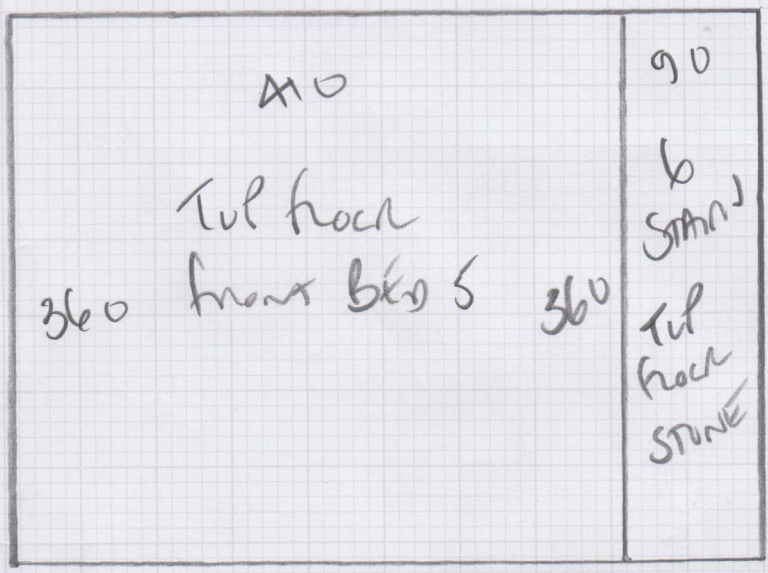 410
Tup floor
front BED 5
360
360
90
6
STAIRS
Tup
floor
STONE